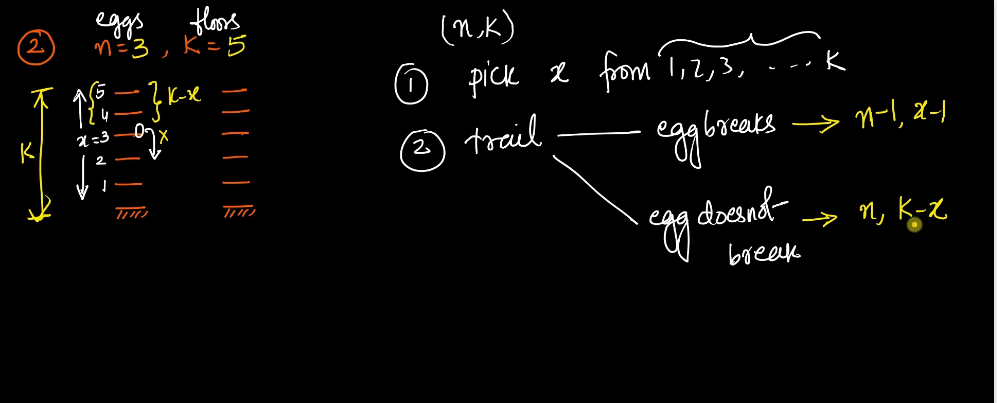 eggs floors
② n=3 , K=5
5
4
x=3 0 x
2
1
K-x
K
(n,K)
① pick x from 1,2,3, .... K
② trail
egg breaks → n-1, x-1
egg doesnot → n, K-x
break